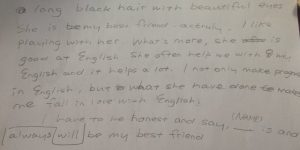 long black hair with beautiful eyes
She is my best friend actually. I like
playing with her. What's more, she is
good at English. She often help me with my
English and it helps a lot. I not only make progre
in English, but what she have done make
me fall in love with English.
I have to be honest and say, (NAME) is and
always will be my best friend